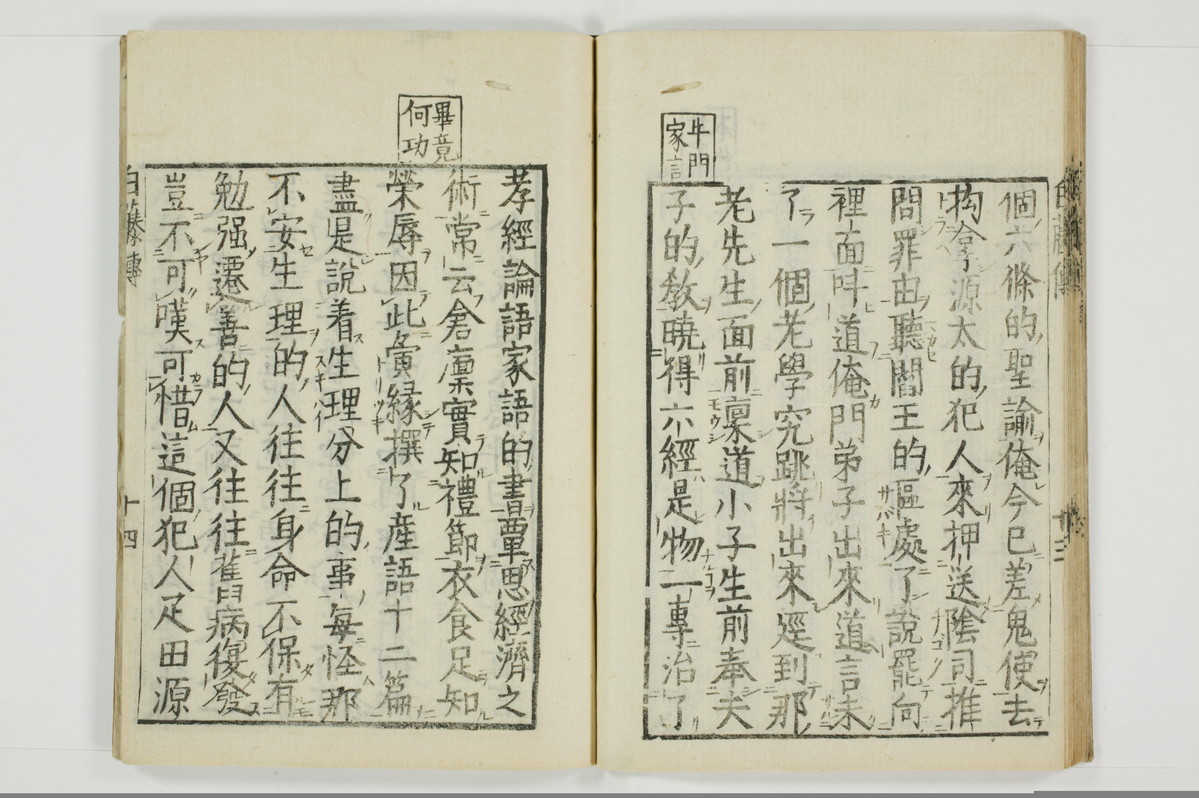 個六條的聖諭俺今已差鬼使去
拘拿源太的犯人來押送陰司推
問罪由聽閻王的區處了說罷向
裡面呌道俺門弟子出來道言未
了一個老學究跳將出來逕到那
老先生面前稟道小子生前奉夫
子的敎曉得六經是物一專治了
牛門
家言
孝經論語家語的書覃思經濟之
術常云倉廩實知禮節衣食足知
榮辱因此寅緣撰了產語十二篇
盡是說着生理分上的事每怪那
不安生理的人往往身命不保有
勉强遷善的人又往往舊病復發
豈不可嘆可惜這個犯人疋田源
畢竟
何功
十四